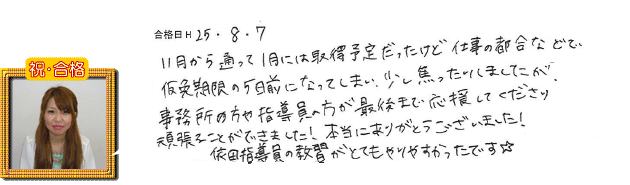 合格日H 25・8・7
祝・合格
11月から通って1月には取得予定だったけど仕事の都合などで
仮免期限の5日前になってしまい、少し焦ったりしましたが、
事務所の方や指導員の方が最後まで応援してくださり
頑張ることができました!本当にありがとうございました!
依田指導員の教習がとてもやりやすかったです☆